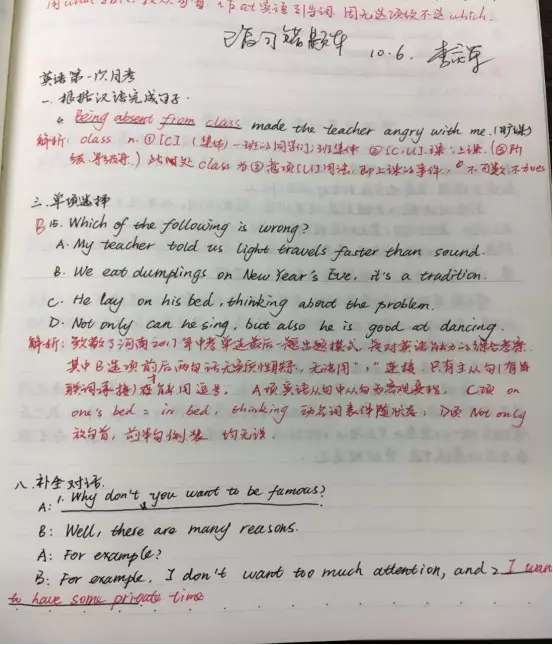 已复习错题本 10.6.
英语第一次月考
一、根据汉语完成句子.
4. Being absent from class made the teacher angry with me. (旷课)
解析: class n. ①[C] (集体) 一班的同学们; 班集体 ②[C,U] 课; 上课. (③阶
级. 等级.) 此时处 class 为②意项[U]用法, 即上课的事件, 不可数, 不加es
三. 单项选择
B 15. Which of the following is wrong?
A. My teacher told us light travels faster than sound.
B. We eat dumplings on New Year's Eve, it's a tradition.
C. He lay on his bed, thinking about the problem.
D. Not only can he sing, but also he is good at dancing.
解析: 致敬了河南2017年中考单选最后一题出题模式, 是对英语的综合考察.
其中B选项前后两句话无, 无法用“,”连接. 只有主从句(有
联词承接)才能用逗号. A项宾语从句中从句为客观真理. C项 on
one's bed = in bed, thinking 动名词表伴随状态; D项 Not only
放句首, 前半句倒装 均无误.
八. 补全对话.
A: 1. Why don't you want to be famous?
B: Well, there are many reasons.
A: For example?
B: For example, I don't want too much attention, and 2 I wan
to have some private time